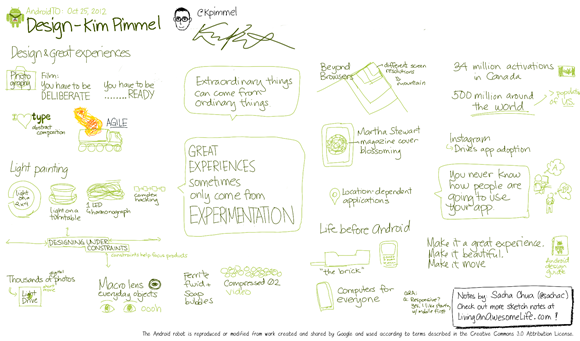 AndroidTO: Oct 25, 2012
Design - Kim Pimmel
@kpimmel
Design & Great experiences
Photography
Film:
You have to be
DELIBERATE
You have to be
........READY
I
type
abstract
composition
AGILE
Light painting
light on a
Light on a
turntable
LED
harmonograph
complex
hacking
DESIGNING UNDER
CONSTRAINTS
constraints help focus products
Thousands of photos
Light
Drive
Macro lens
everyday objects
oooh
Ferrite
fluid +
Soap
bubbles
Compressed 02
video
Extraordinary things
can come from
ordinary things
GREAT
EXPERIENCES
sometimes
only come from
EXPERIMENTATION
Beyond
Browsers
different screen
resolutions
mountain
Martha Stewart
magazine cover
blossoming
Location-dependent
applications
Life before Android
"the brick"
Computers for
everyone
34 million activations
in Canada
500 million around
the world
> population
of U.S.
Instagram
Drives app adoption
You never know
how people are
going to use
your app
Make it a great experience.
Make it beautiful.
Make it move
Android
design
guide
Notes by Sacha Chua (@sachac)
Check out more sketch notes at
LivingAnAwesomeLife.com!
The Android robot is reproduced or modified from work created and shared by Google and used according to terms described in the Creative Commons 3.0 Attribution License.